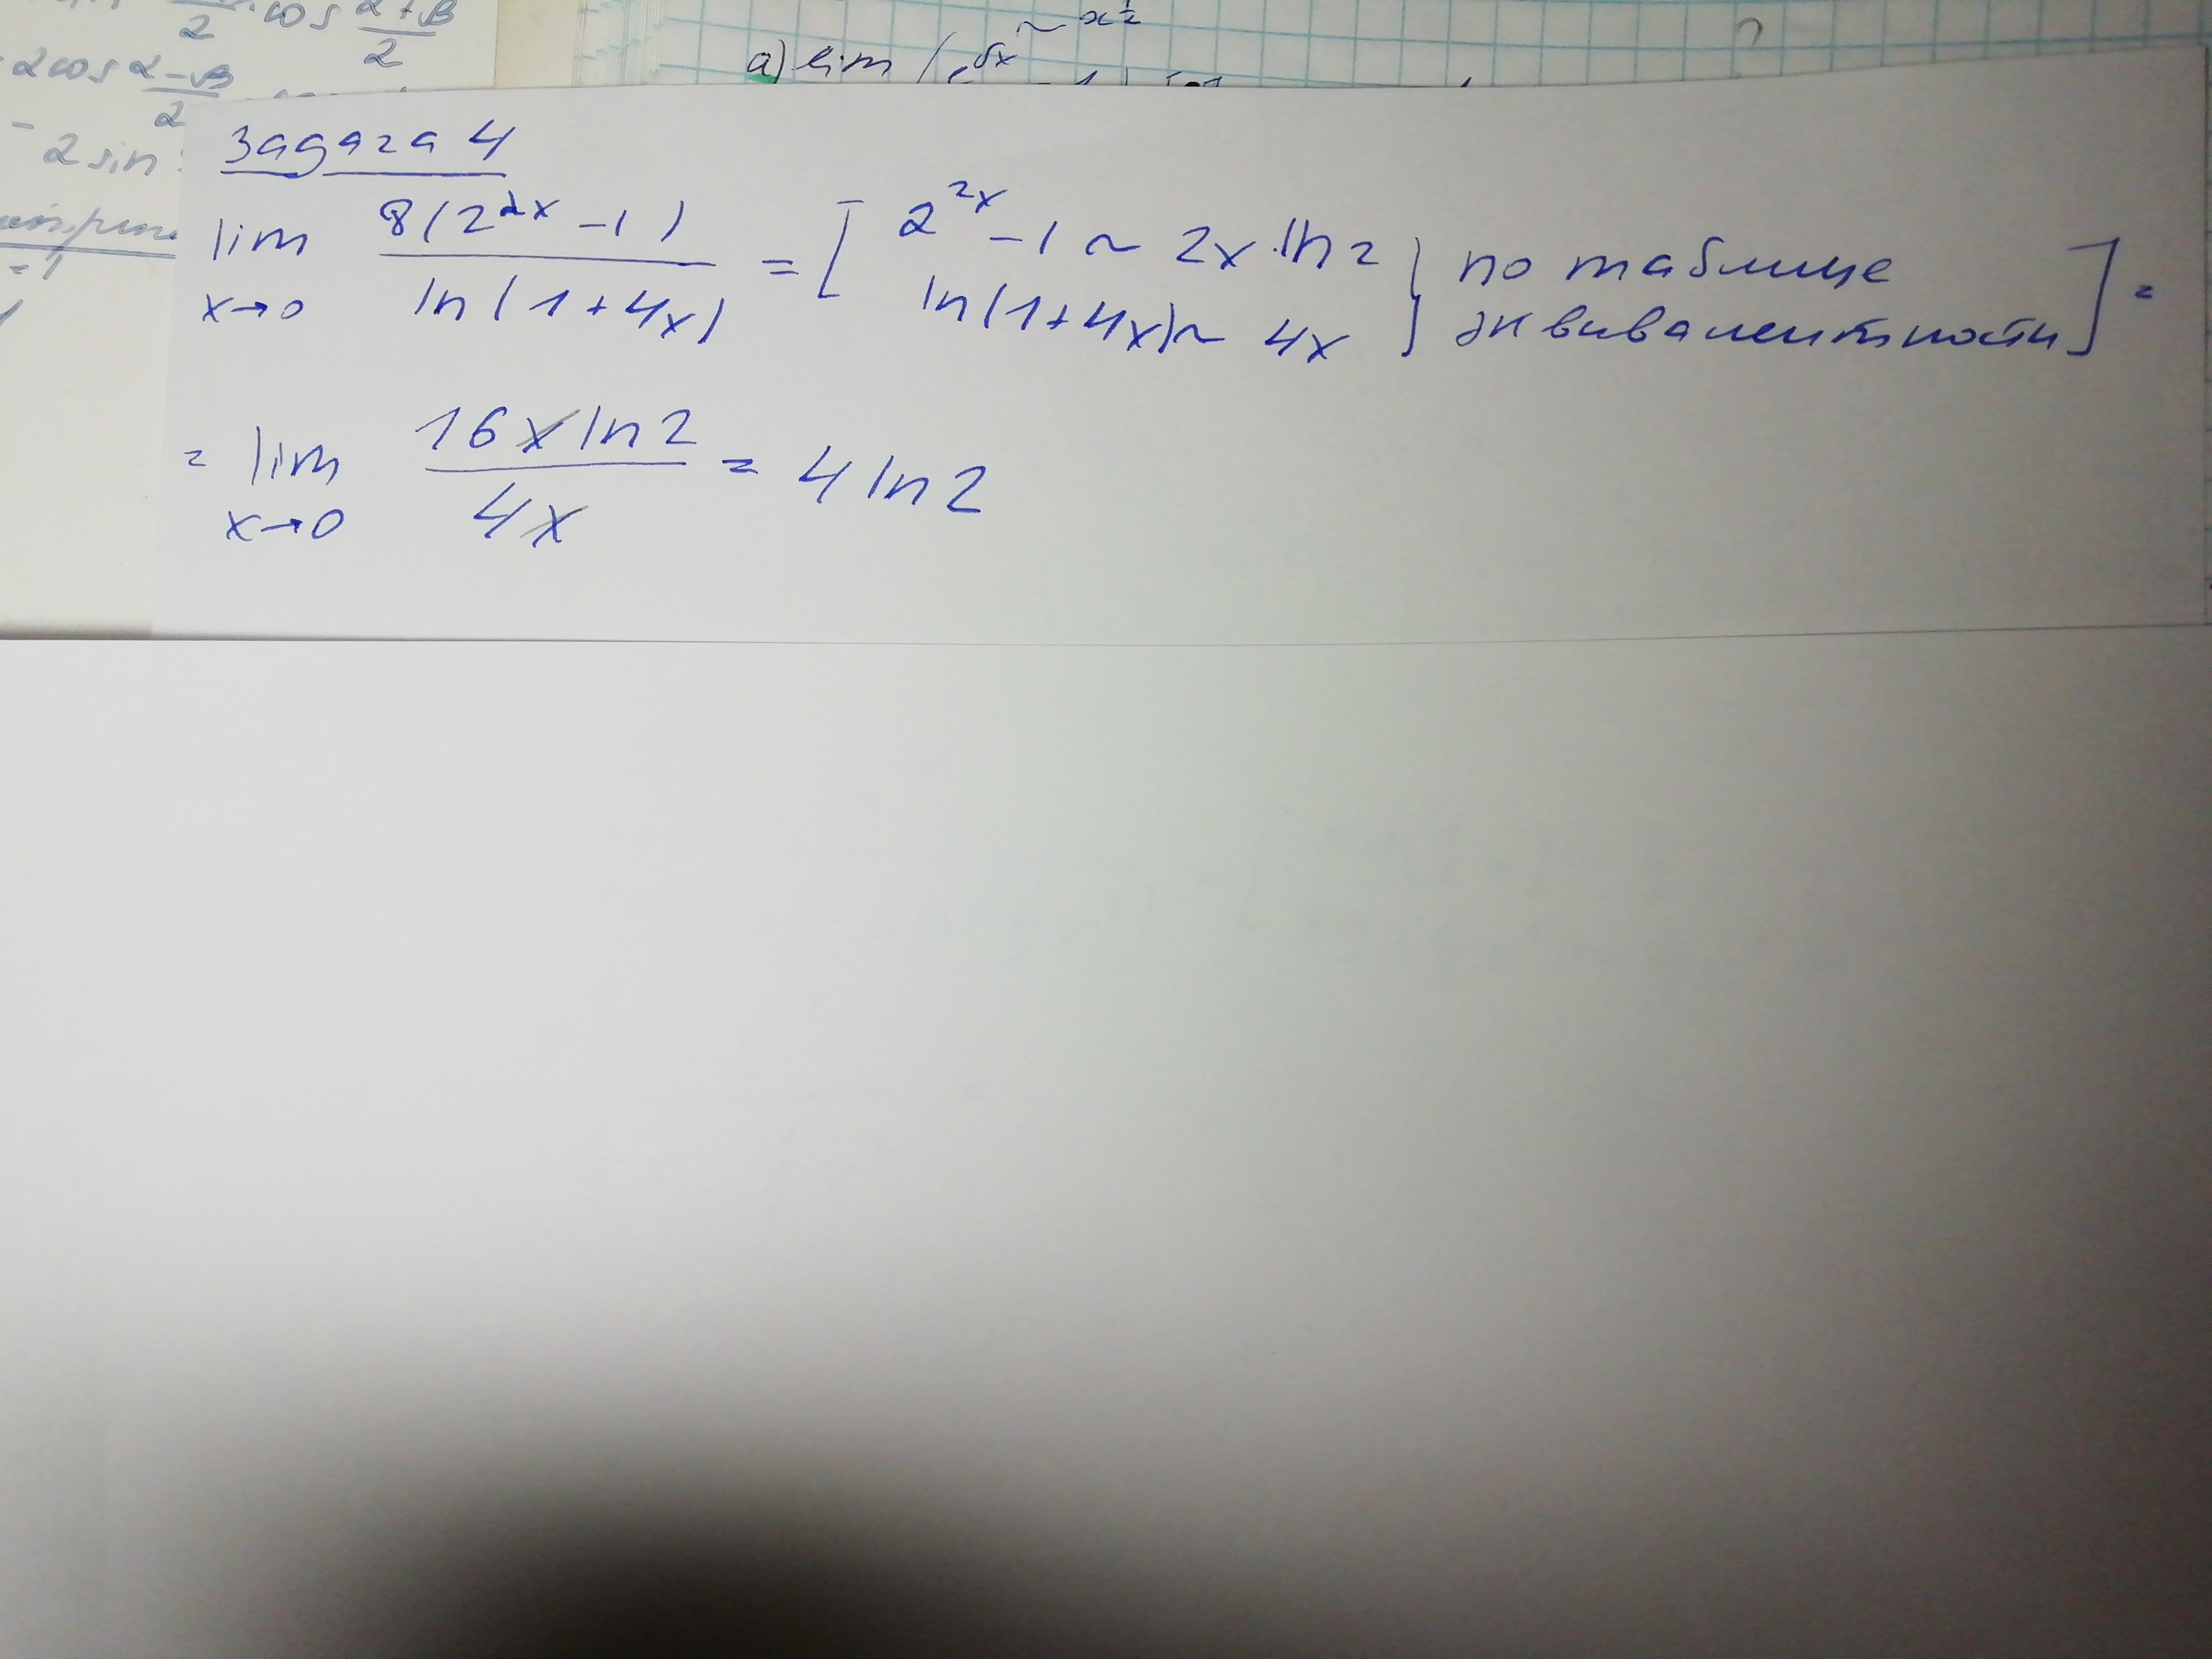 2 cos α+β
2
2cos α-β
2
- 2 sin
= 1
a) lim ( e^5x ~ x^1/2
Задача 4
lim x→0 8(2^2x -1) / ln(1+4x) = [ 2^2x -1 ~ 2x·ln2 ln(1+4x) ~ 4x } по таблице эквивалентности ] =
= lim x→0 16x ln2 / 4x = 4 ln2